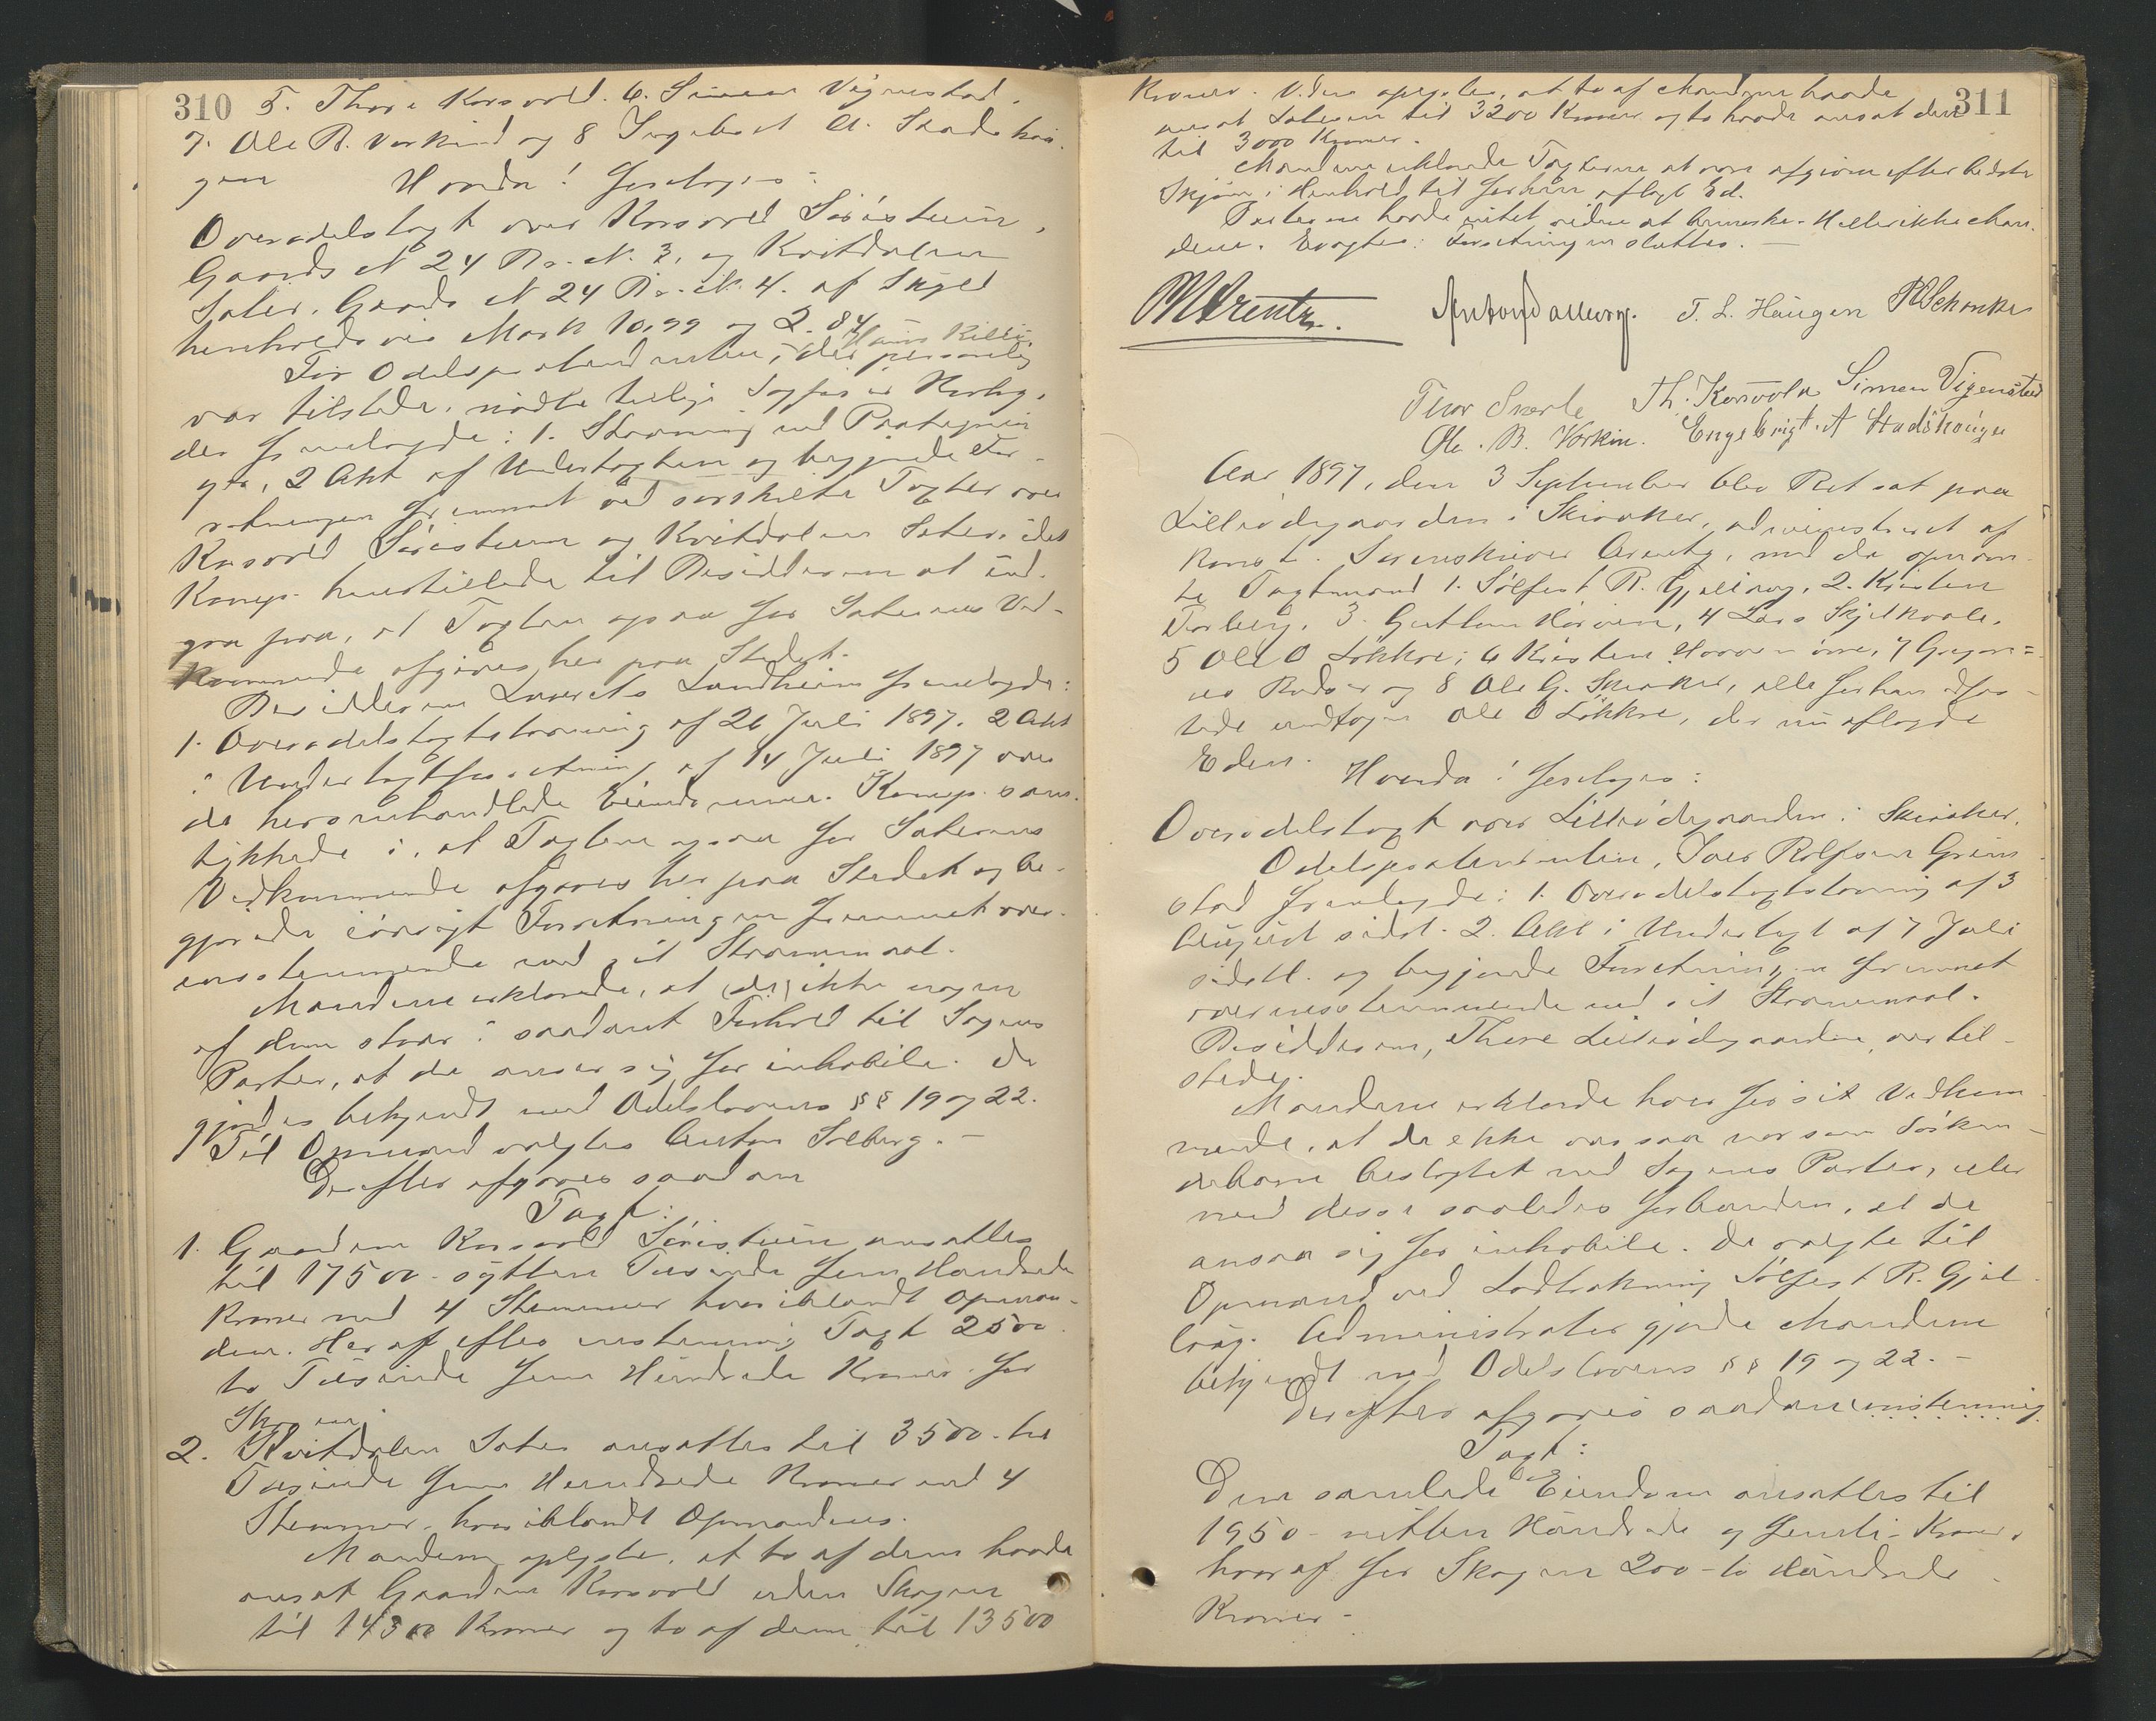 310
5. Thore Korsvold. 6. Simen Vigenstad.
7. Ole B. Vorkind og 8 Ingebrigt A. Stadshau-
gen
Hvorda! Foretoges:
Overodelstagt over Korsvold Søistuen,
Gaards N 24 Br. N. 3, og Kvitdalen
Sæter, Gaards N 24 Br. N. 4. af Skyld
henholdsvis Mark 10,99 og 2. 84
For Odelsprætendenten, der personlig
var tilstede, mødte tillige Sagfører
der fremlagde: 1. Stævning med Paategnin
ger, 2 Akt af Undertagten og begjærede For-
retningen fremmet ved særskilte Tagter over
Korsvold Søistuen og Kvitdalen Sæter, idet
Komp. henstillede til Besidderen at ind-
gaa paa, at Tagten ogsaa for Sæterens Ved-
kommende afgives her paa Stedet.
Besidderen Laurits Sundheim fremlagde:
1. Overodelstagtstævning af 26 Juli 1897. 2 Akt
i Undertagtforretning af 14 Juli 1897 over
de hersomhandlede Eiendomme. Komp. sam-
tykkede i, at Tagten ogsaa for Sæterens
Vedkommende afgives her paa Stedet og be-
gjærede iøvrigt Forretningen fremmet over-
ensstemmende med sit Stævnemaal.
Mændene erklærede, at (der) ikke nogen
af dem staar i saadant Forhold til Sagens
Parter, at de anser sig for inhabile. De
gjordes bekjendt med Odelslovens §§ 19 og 22.
Til Opmand valgtes Anton Solberg. -
Derefter afgaves saadan
Tagt:
1. Gaarden Korsvold Søistuen ansattes
til 17500 - sytten Tusinde fem Hundrede
Kroner med 4 Stemmer hvoriblandt Opman-
dens. Heraf efter enstemmig Tagt 2500
to Tusinde fem Hundrede Kroner for
Skogen.
2. Kvitdalen Sæter ansattes til 3500 - tre
Tusinde fem Hundrede Kroner med 4
Stemmer, hvoriblandt Opmandens.
Mændene oplyste, at to af dem havde
ansat Gaarden Korsvold uden Skogen
til 14300 Kroner og to af dem til 13500
311
Kroner. Videre oplystes, at to af Mændene havde
ansat Sæteren til 3200 Kroner og to havde ansat den
til 3000 Kroner.
Mændene erklærede Tagterne at være afgivne efter bedste
Skjøn i Henhold til forhen aflagt Ed.
Parterne havde intet videre at bemærke. Heller ikke Mæn-
dene. Vedtagtes: Forretningen sluttes. -
Arentz. Anton Solberg. T. L. Haugen
Thor Th. Korsvold Simen Vigenstad
Ole. B. Vorkin. Engebrigt. A Stadshougen
Aar 1897, den 3 September blev Ret sat paa
Lillødegaarden i Skiaker, administreret af
konst. Sorenskriver Arentz, med de opnævn-
te Tagtmænd 1. Sølfest R. Gjeilaug, 2. Kristen
Forberg, 3. Guttorm Hørven, 4 Lars Skjelkvale,
5 Ole O Løkkre, 6 Kristen 7 Gregori=
us Rudser og 8 Ole G. Skiaker, alle forhen edfæs-
tede undtagen Ole O Løkkre, der nu aflagde
Eden.
Hvorda! Foretoges:
Overodelstagt over Lillødegaarden i Skiaker.
Odelsprætendenten, Iver Rolfsen Grim-
stad fremlagde: 1. Overodelstagtstævning af 3
August sidst. 2. Akt i Undertagt af 7 Juli
sidstl. og begjærede Forretningen fremmet
overensstemmende med sit Stævnemaal.
Besidderen, Thore Lillødegaarden, var til-
stede.
Mændene erklærede hver for sit Vedkom-
mende, at de ikke var saa nær som Søsken-
debarn beslægtet med Sagens Parter, eller
med disse saaledes forbunden, at de
ansaa sig for inhabile. De valgte til
Opmand ved Lodtrækning Sølfest R. Gjei-
laug. Administrator gjorde Mændene
bekjendt med Odelslovens §§ 19 og 22. -
Derefter afgaves saadan enstemmig
Tagt:
Den samlede Eiendom ansattes til
1950 - nitten Hundrede og femti - Kroner,
hvoraf for Skogen 200 - to Hundrede
Kroner -